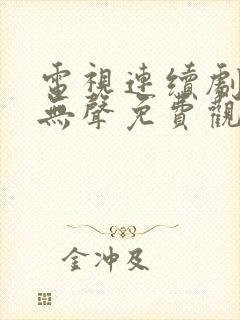 電視連續劇
無聲免費觀
金冲及